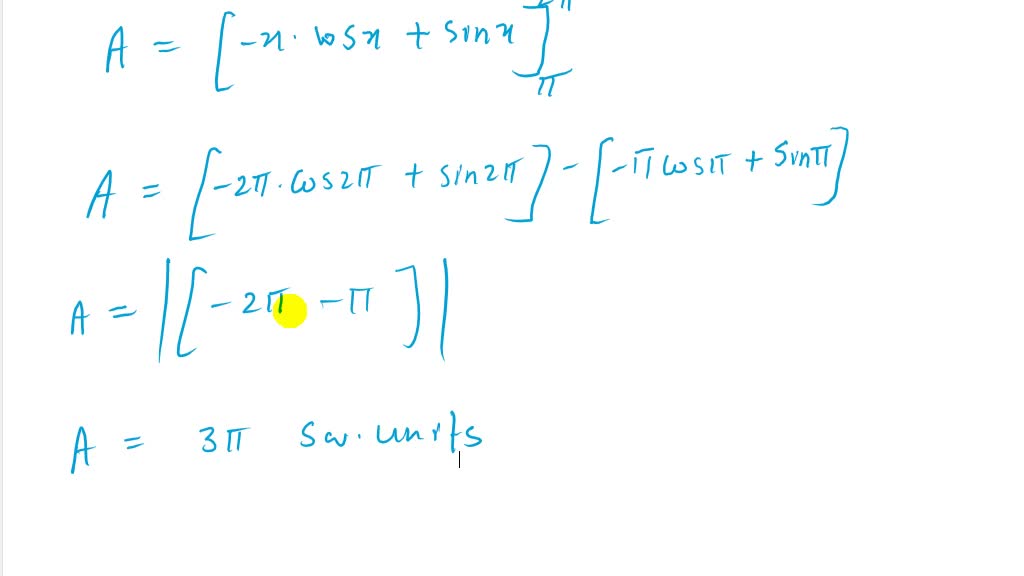 A = [-x. cosx + sinx]
π
A = [-2π. cos2π + sin2π] - [-π cosπ + Sinπ]
A = |[-2π -π]|
A = 3π Sq. units